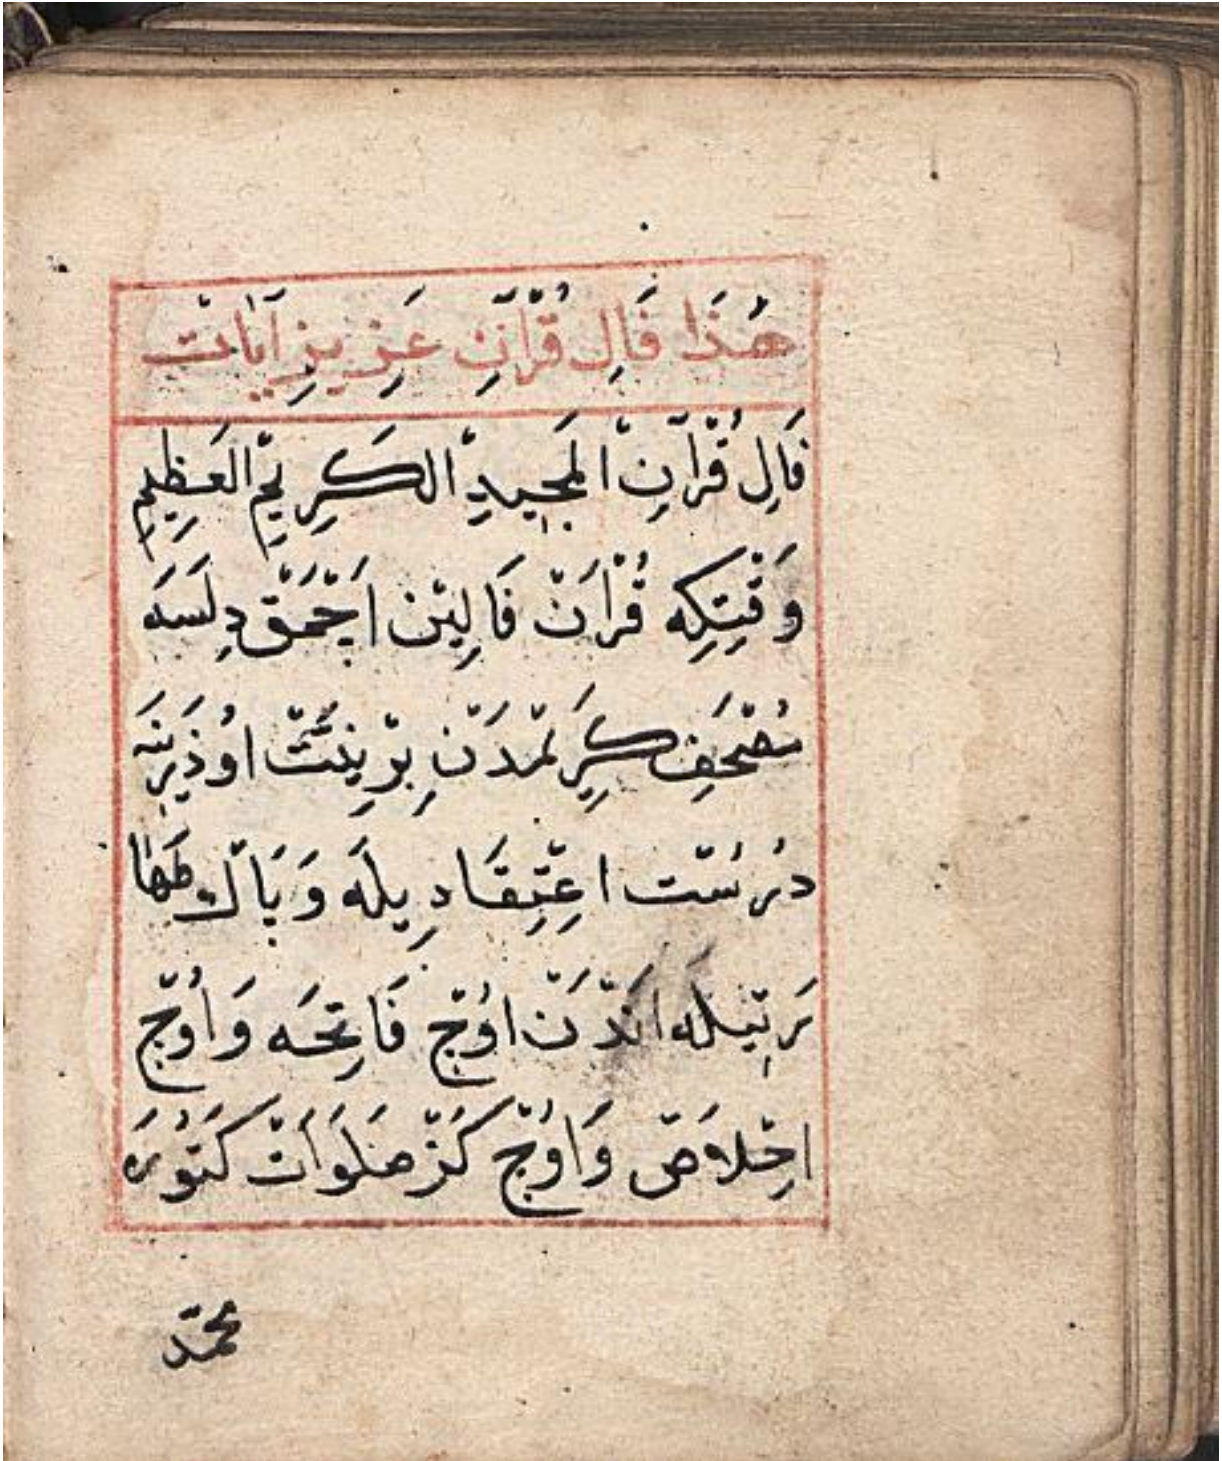 هٰذَا فَالِ قُرْآنِ عَزِيزِ آيَاتْ
فَالِ قُرْآنِ الْمَجِيدِ الْكَرِيمِ الْعَظِيمِ
وَقْتِكِه قُرْاَنْ فَالِينْ اَچْمَقْ دِلَسَه
مُصْحَفِ كَرِيمْدَنْ بِرْ نِيَّتْ اوُذَرِنَه
دُرُسْتْ اِعْتِقَادِيلَه وَپَاكْ طَهَا
رَتِيلَه اَنْدَنْ اوُچْ فَاتِحَه وَاوُچْ
اِخْلاَصْ وَاوُچْ كَزْ صَلَوَاتْ كَتوُرَ
محمّد